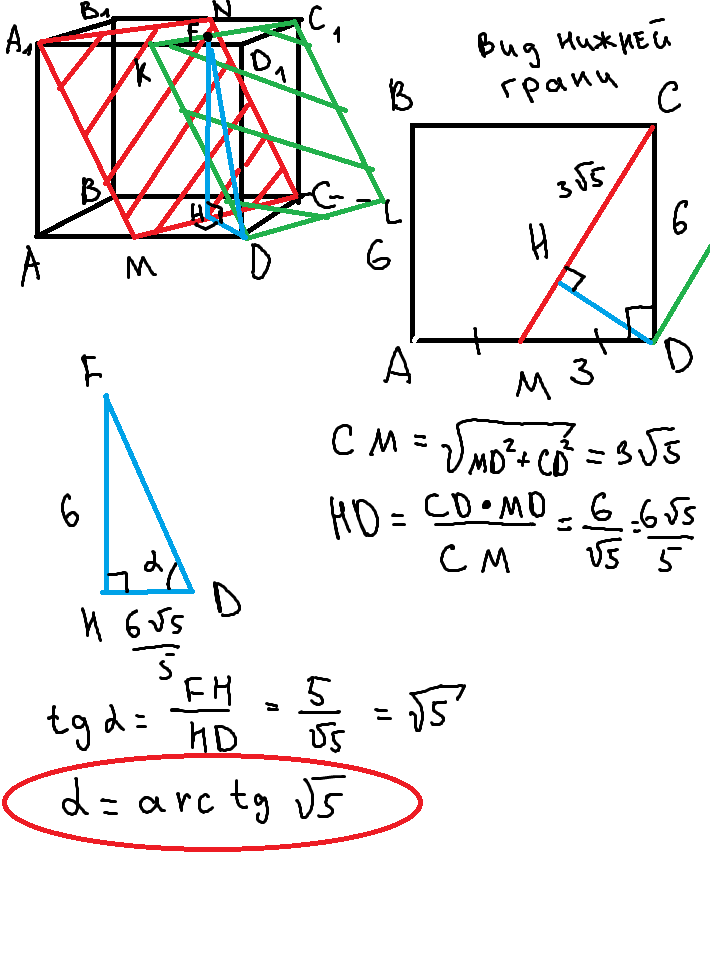 B₁ N C₁
A₁ F
K D₁
B H C L
A M D 6
Вид нижней
грани
B C
3√5
H 6
A M 3 D
F
6
α
H 6√5/5 D
CM = √(MD² + CD²) = 3√5
HD = CD • MD / CM = 6/√5 = 6√5/5
tg α = FH/HD = 5/√5 = √5
α = arc tg √5